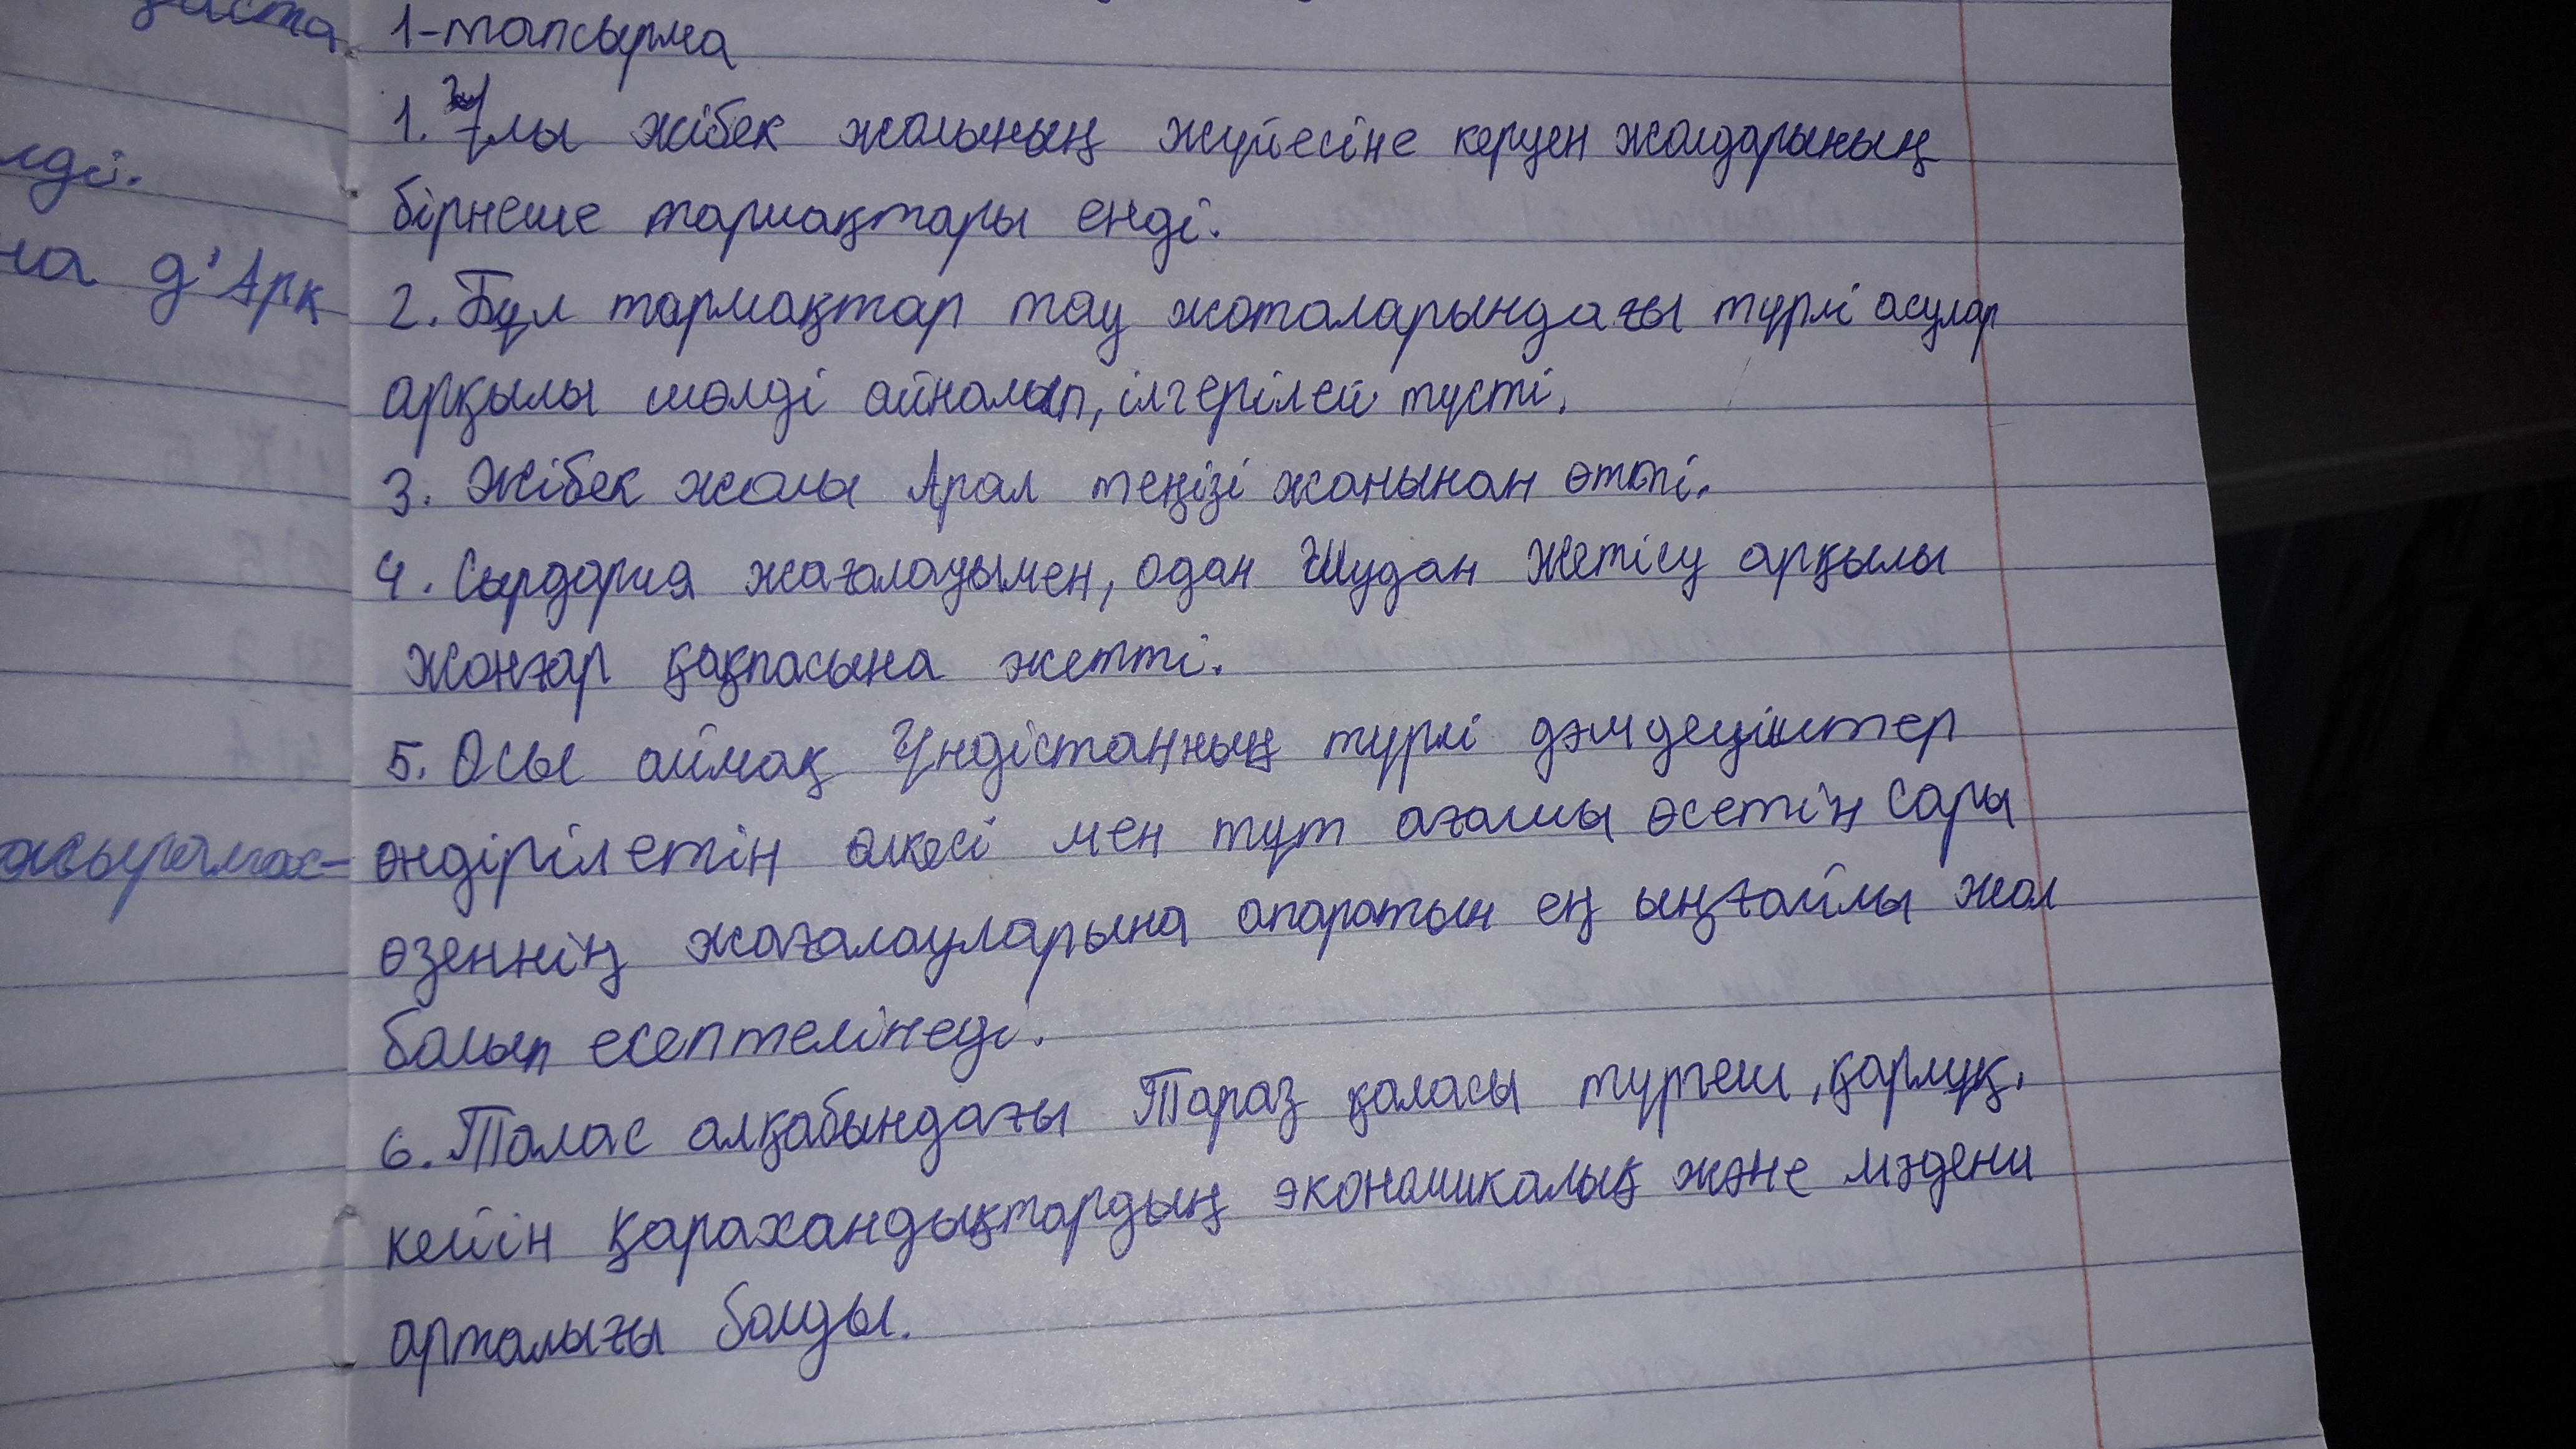 1-тапсырма
1. Ұлы жібек жолының жүйесіне керуен жолдарының
бірнеше тармақтары енді.
2. Бұл тармақтар тау жоталарындағы түрлі асулар
арқылы шөлді айналып, ілгерілей түсті.
3. Жібек жолы Арал теңізі жанынан өтті.
4. Сырдария жағалауымен, одан Шудан Жетісу арқылы
Жонғар қақпасына жетті.
5. Осы аймақ Үндістанның түрлі дәмдеуіштер
өндірілетін өлкесі мен тұт ағашы өсетін Сары
өзеннің жағалауларына апаратын ең ыңғайлы жол
болып есептелінеді.
6. Талас алқабындағы Тараз қаласы түргеш, қарлұқ,
кейін қарахандықтардың экономикалық және мәдени
орталығы болды.
лді.
на д'Арк